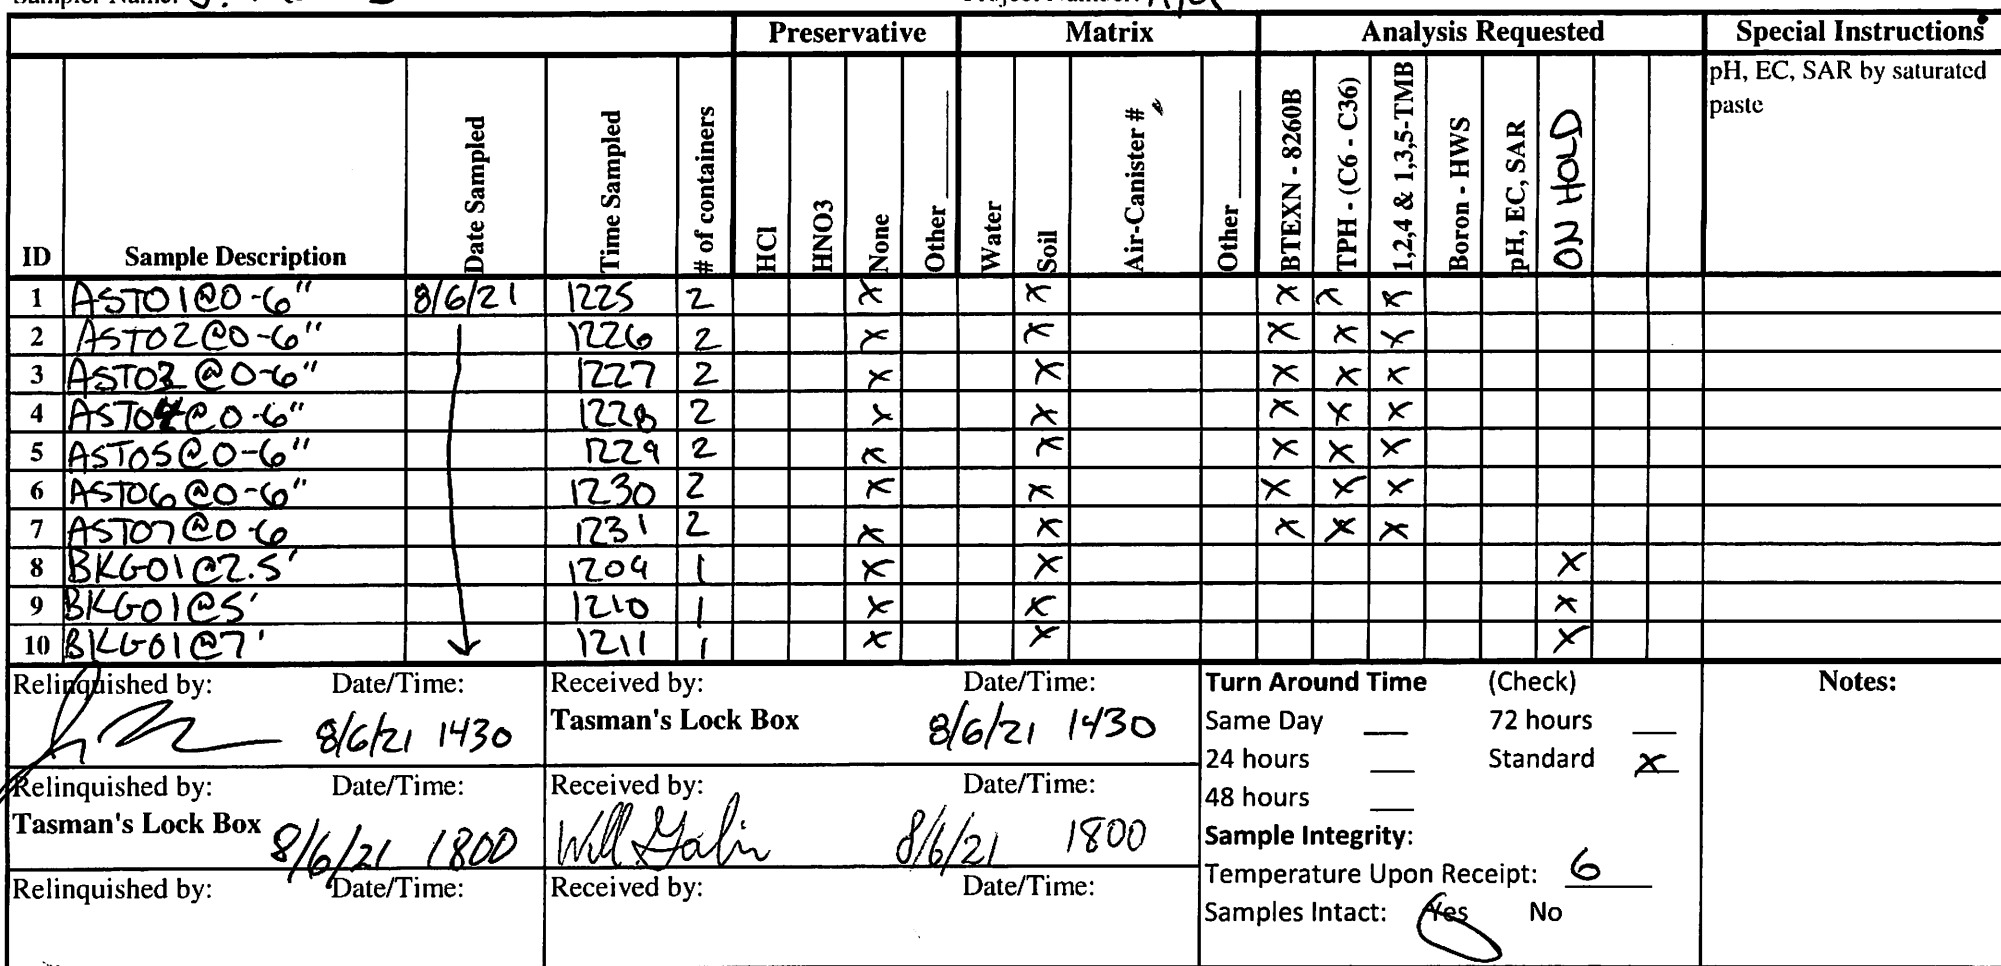 Sampler Name:
Project Number:
Preservative Matrix Analysis Requested Special Instructions
ID Sample Description Date Sampled Time Sampled # of containers HCl HNO3 None Other ____ Water Soil Air-Canister # Other ____ BTEXN - 8260B TPH - (C6 - C36) 1,2,4 & 1,3,5-TMB Boron - HWS pH, EC, SAR ON HOLD
pH, EC, SAR by saturated
paste
1 AST01@0-6" 8/6/21 1225 2 X X X X X
2 AST02@0-6" 1226 2 X X X X X
3 AST03@0-6" 1227 2 X X X X X
4 AST04@0-6" 1228 2 X X X X X
5 AST05@0-6" 1229 2 X X X X X
6 AST06@0-6" 1230 2 X X X X X
7 AST07@0-6 1231 2 X X X X X
8 BKG01@2.5' 1209 1 X X X
9 BKG01@5' 1210 1 X X X
10 BKG01@7' 1211 1 X X X
Relinquished by: Date/Time:
8/6/21 1430
Received by: Date/Time:
Tasman's Lock Box 8/6/21 1430
Relinquished by: Date/Time:
Tasman's Lock Box 8/6/21 1800
Received by: Date/Time:
Will 8/6/21 1800
Relinquished by: Date/Time:
Received by: Date/Time:
Turn Around Time (Check)
Same Day ___ 72 hours ___
24 hours ___ Standard X
48 hours ___
Sample Integrity:
Temperature Upon Receipt: 6
Samples Intact: Yes No
Notes: